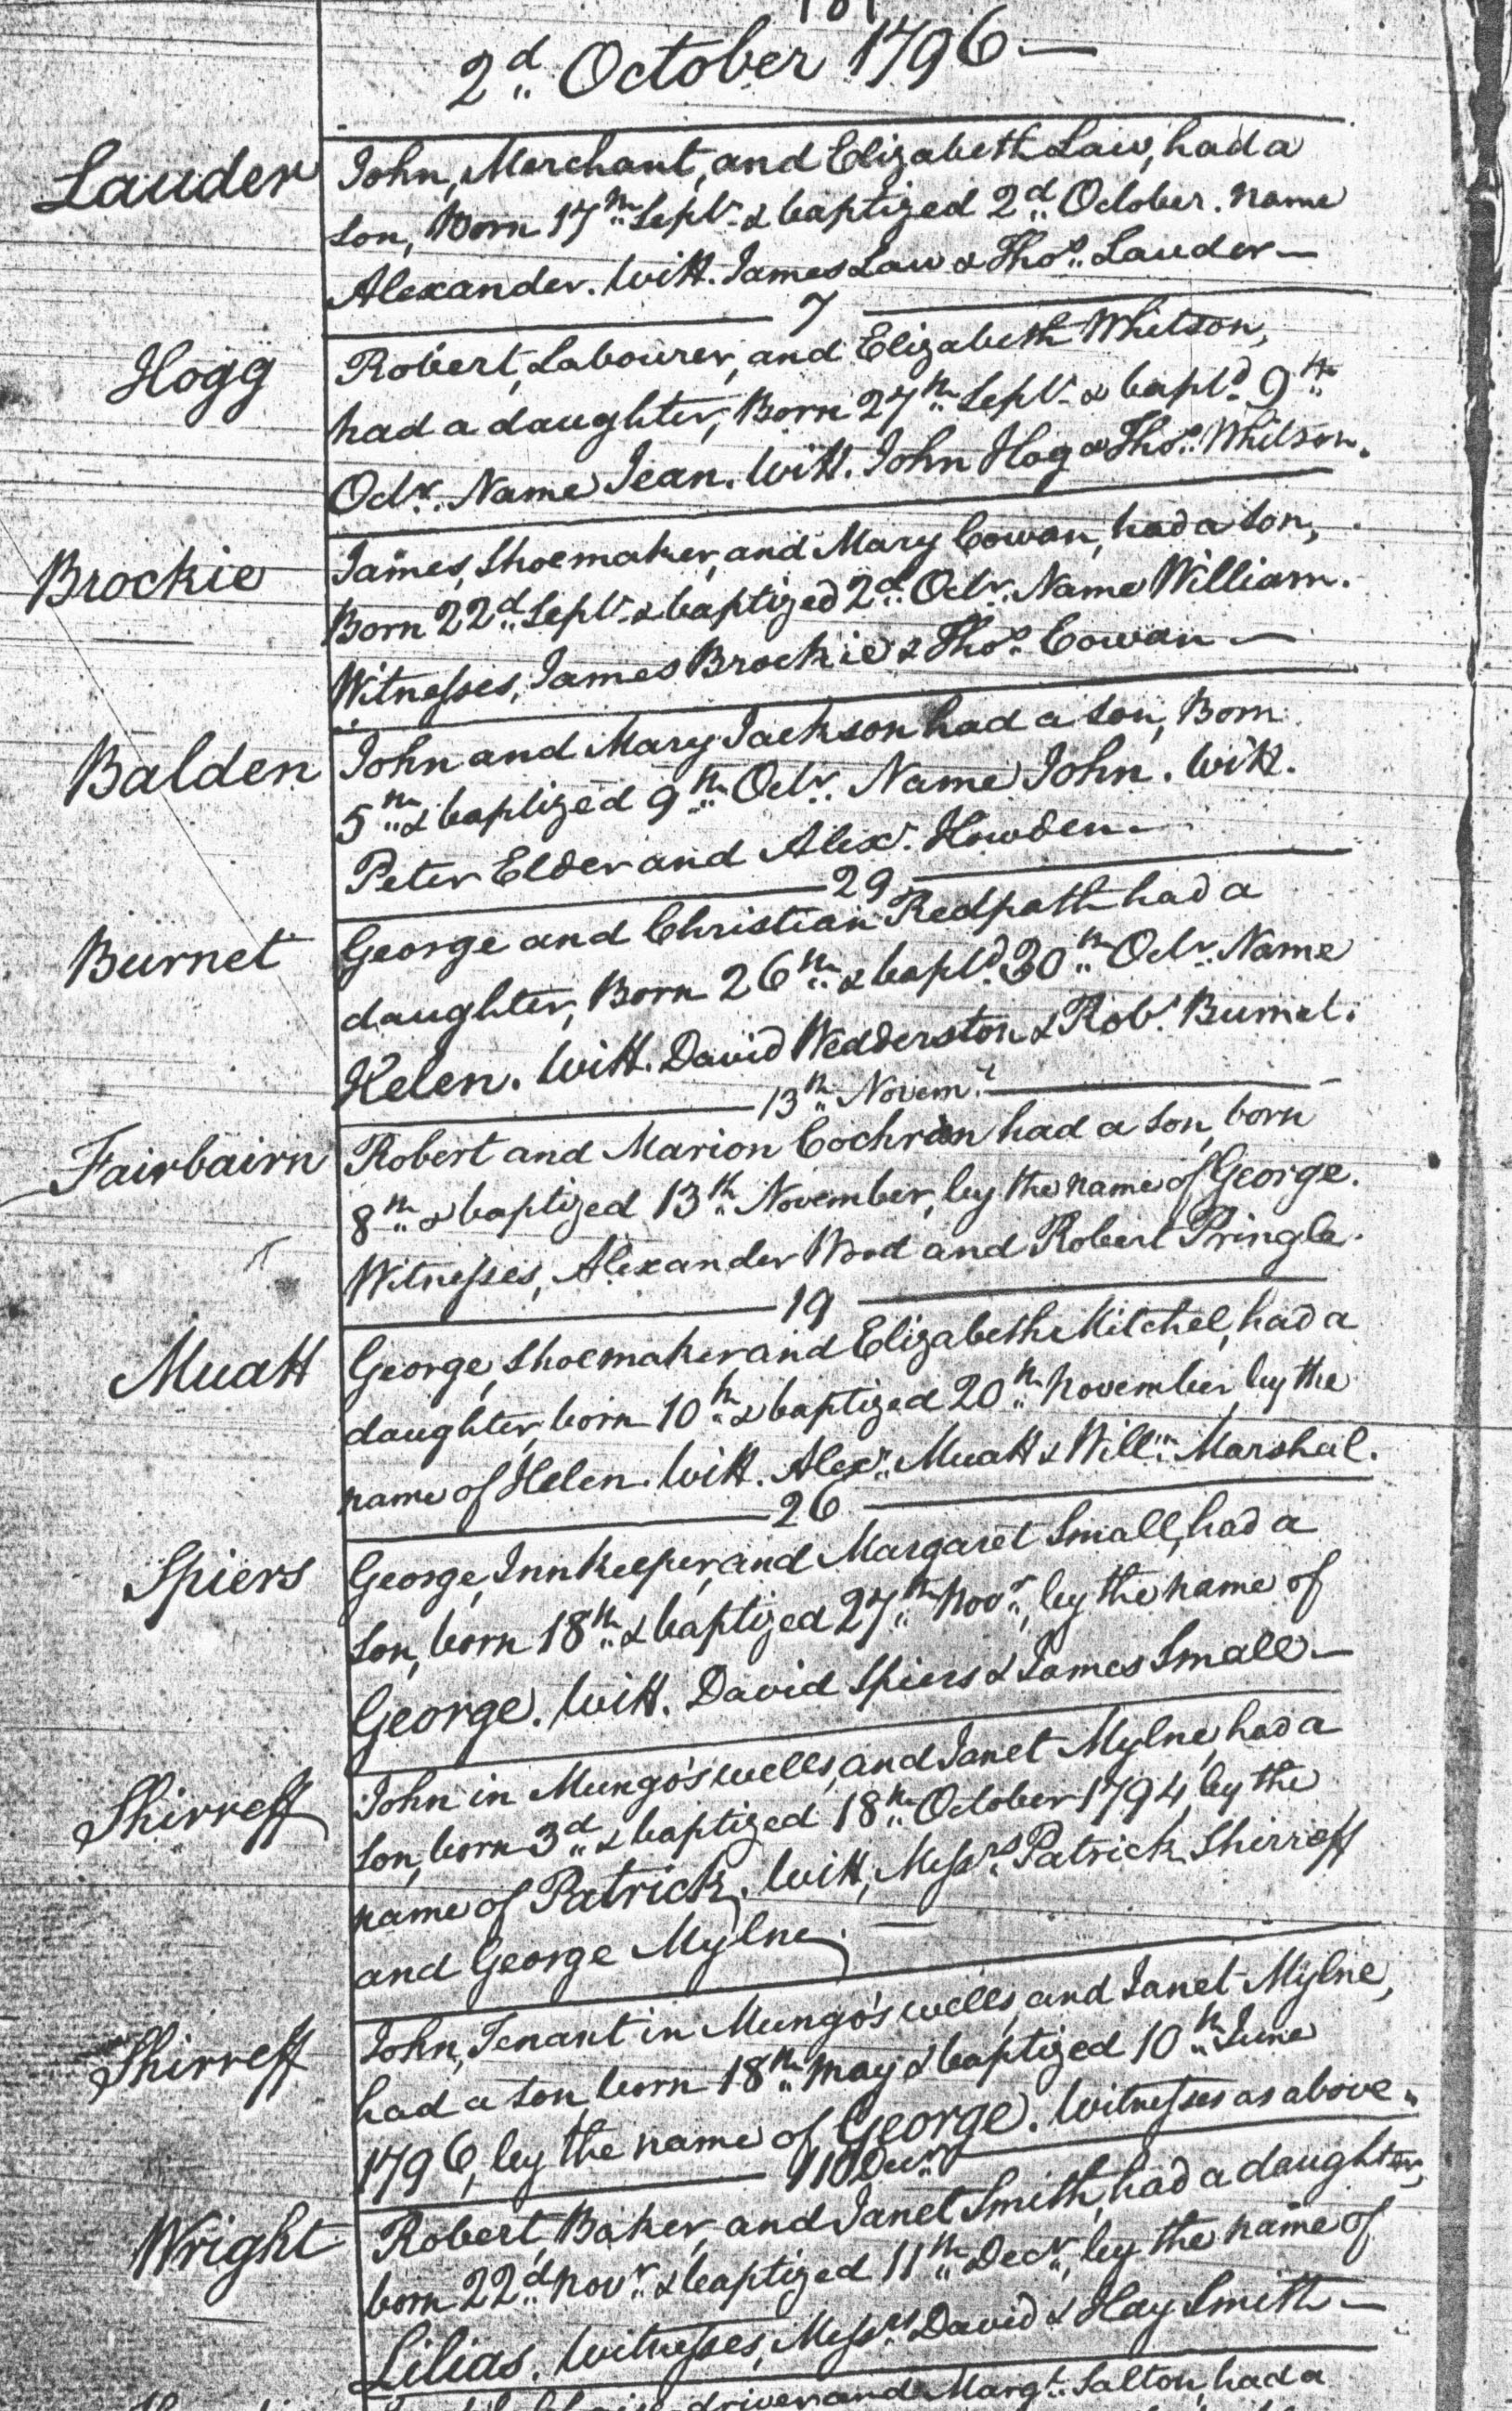 2d October 1796
Lauder
John, Merchant, and Elizabeth Law, had a
son, Born 17th Septr & baptized 2d October. name
Alexander. Witt. James Law & Thos Lauder
7
Hogg
Robert, Labourer, and Elizabeth Whitson,
had a daughter, Born 27th Septr & baptd 9th
Octr. Name Jean. Witt. John Hog & Thos Whitson.
Brockie
James, Shoemaker, and Mary Cowan, had a son,
Born 22d Septr & baptized 2d Octr. Name William.
Witnesses, James Brockie & Thos Cowan
Balden
John and Mary Jackson had a son, Born
5th & baptized 9th Octr. Name John. Witt.
Peter Elder and Alexr Howden
29
Burnet
George and Christian Redpath had a
daughter, Born 26th & baptd 30th Octr. Name
Helen. Witt. David Wedderston & Robt Burnet.
13th Novemr
Fairbairn
Robert and Marion Cochran had a son, born
8th & baptized 13th November, by the name of George.
Witnesses, Alexander Wood and Robert Pringle.
19
Muatt
George, Shoemaker, and Elizabeth Mitchel, had a
daughter, born 10th & baptized 20th november, by the
name of Helen. Witt. Alexr Muatt & Willm Marshal.
26
Spiers
George, Innkeeper, and Margaret Small, had a
son, born 18th & baptized 27th novr, by the name of
George. Witt. David Spiers & James Small
Shirreff
John in Mungo's wells, and Janet Mylne, had a
son, born 3d & baptized 18th October 1794, by the
name of Patrick. Witt, Messrs Patrick Shirreff
and George Mylne.
Shirreff
John, Tenant in Mungo's wells, and Janet Mylne,
had a son, born 18th may & baptized 10th June
1796, by the name of George. Witnesses as above.
Decr
Wright
Robert, Baker, and Janet Smith, had a daughter,
born 22d novr & baptized 11th Decr, by the name of
Lilias. Witnesses, Messrs David & Hay Smith
driver and Margt Salton, had a